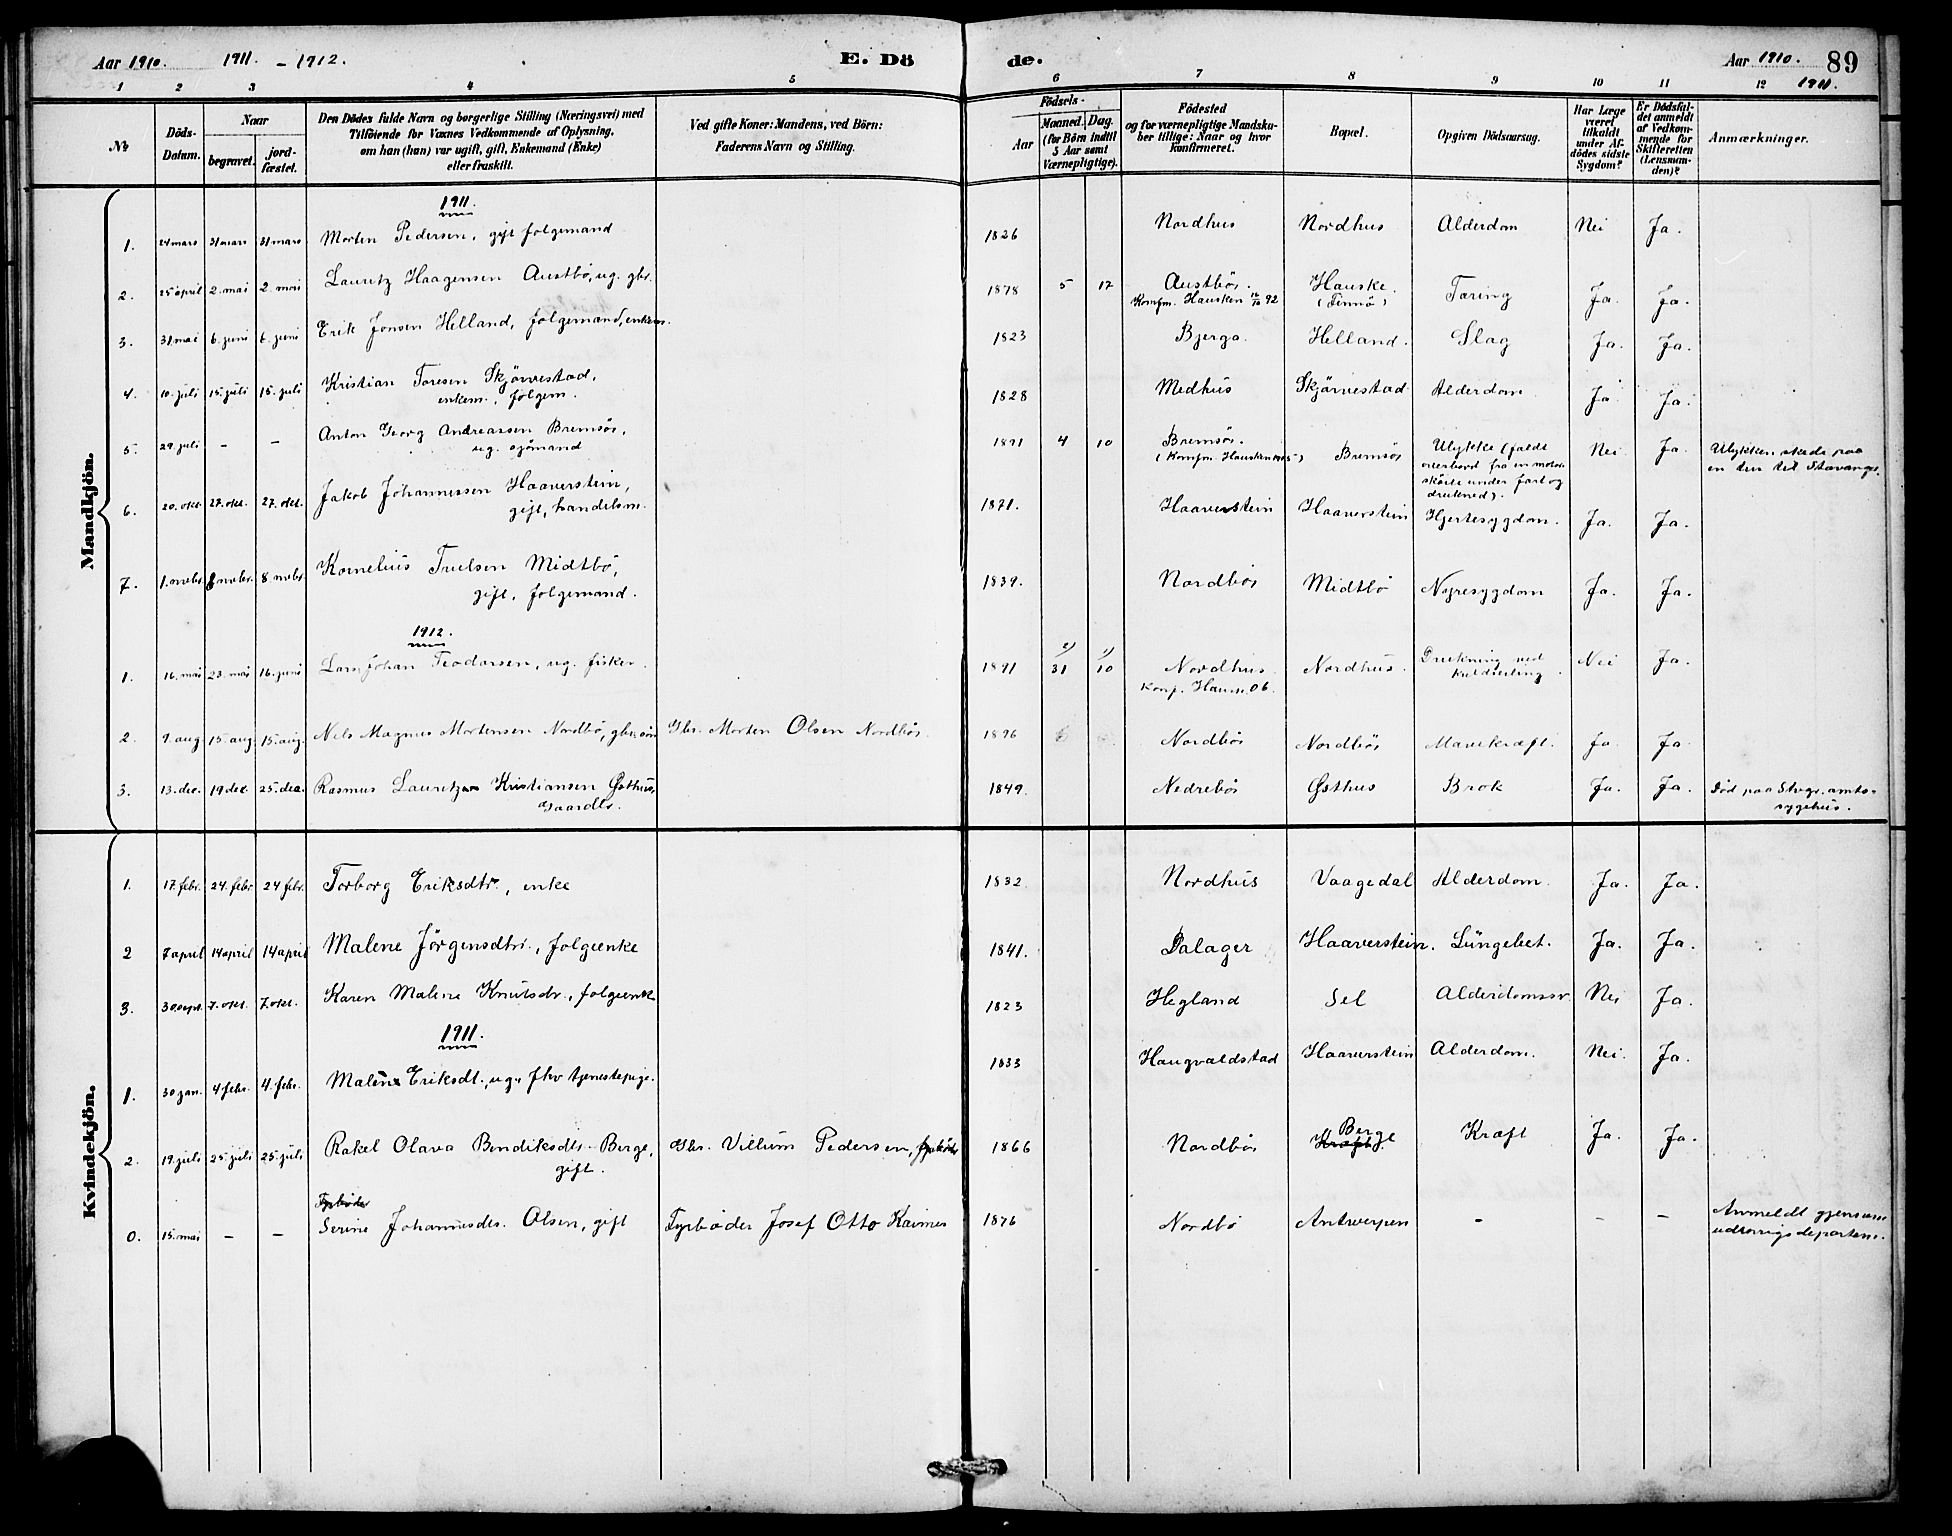 Aar 1910. 1911. – 1912. E. Dö
de. Aar 1910. 89
1911.
1 2 3 4 5 6 7 8 9 10 11 12
№
Döds-Datum.
Naar
begravet.
jord-fæstet.
Den Dödes fulde Navn og borgerlige Stilling (Næringsvei) med
Tilföiende for Voxnes Vedkommende af Oplysning,
om han (hun) var ugift, gift, Enkemand (Enke)
eller fraskilt.
Ved gifte Koner: Mandens, ved Börn:
Faderens Navn og Stilling.
Födsels-
Aar
Maaned. Dag.
(for Börn indtil
5 Aar samt
Værnepligtige).
Födested
og for værnepligtige Mandska-
ber tillige: Naar og hvor
konfirmeret.
Bopæl.
Opgiven Dödsaarsag.
Har Læge
været
tilkaldt
under Af-
dödes sidste
Sygdom?
Er Dödsfal-
det anmeldt
af Vedkom-
mende for
Skifteretten
(Lensman-
den)?
Anmærkninger.
Mandkjön.
1911.
1. 24 mars 31 mars 31 mars Morten Pedersen, gift folgemand 1826 Nordhus Nordhus Alderdom Nei Ja.
2. 25 april 2. mai 2. mai Lauritz Haagensen Austbö, ug. gbr. 1878 5 17 Austbös. Hauske. Tæring Ja. Ja.
Konfm. Hausken 92 (Finnö)
3. 31. mai 6. juni 6. juni Erik Jonsen Helland, folgemand, enkem. 1823 Bjerga. Helland. Slag Ja. Ja.
4. 10. juli 15. juli 15. juli Kristian Toresen Skjörvestad, 1828 Medhus Skjörvestad Alderdom Ja. Ja.
enkem., folgem.
5. 29. juli – – Anton Georg Andreassen Bremsös, 1891 4 10 Bremsös. Bremsös Ulykke (faldt Nei Ja. Ulykken skede paa
ug. sjömand (Konfm. Hausken overbord fra en motor- en tur til Stavanger.
sköite under fart og
drukned).
6. 20. okt. 27. okt. 27. okt. Jakob Johannessen Haaverstein, 1871. Haaverstein Haaverstein Hjertesygdom. Ja. Ja.
gift, handelsm.
7. 1. novbr. 8 novbr. 8 novbr. Kornelius Truelsen Midtbö, 1839. Nordbös Midtbö Nyresygdom Ja. Ja.
gift, folgemand.
1912.
1. 16. mai 23. mai 16. juni Lars Johan Teodorsen, ug. fisker. 1891 31 10 Nordhus. Nordhus. Drukning ved Nei Ja.
Konf. Hausk. 06. kuldseiling.
2. 9. aug 15. aug. 15. aug. Nils Magnus Mortensen Nordbö, gbr. sön Gbr. Morten Olsen Nordbös. 1896 Nordbös Nordbös Mavekræft. Ja. Ja.
3. 13. dec. 19 dec. 25. dec. Rasmus Lauritzen Kristiansen Østhus, 1849. Nedrebös Østhus Brok Ja. Ja. Död paa Stvgr. amts-
Gaardbr. sygehus.
Kvindekjön.
1. 17. febr. 24. febr 24 febr. Torborg Eriksdtr., enke 1832 Nordhus Vaagedal Alderdom. Ja. Ja.
2 7 april 14 april 14 april Malene Jörgensdtr., folgeenke 1841. Dalager Haaverstein. Lungebet. Ja. Ja.
3. 30. sept. 7. okt. 7. okt. Karen Malene Knutsdr., folgeenke 1823 Hegland Sel Alderdomssv. Nei Ja.
1911.
1. 30 jan. 4. febr. 4. febr. Malene Eriksdt., ug. fhv tjenestepige. 1833 Haugvaldstad Haaverstein Alderdom. Nei. Ja.
2. 19. juli 25. juli 25. juli Rakel Olava Bendiksdtr. Berge, Gbr. Villum Pedersen, 1866 Nordbös Kræft. Berge Kræft Ja. Ja.
gift.
Fyrböder
0. 15. mai – – Serine Johannesdtr. Olsen, gift Fyrböder Josef Otto 1876 Nordbö Antwerpen – – – Anmeldt gjennem
udenrigsdepartem.